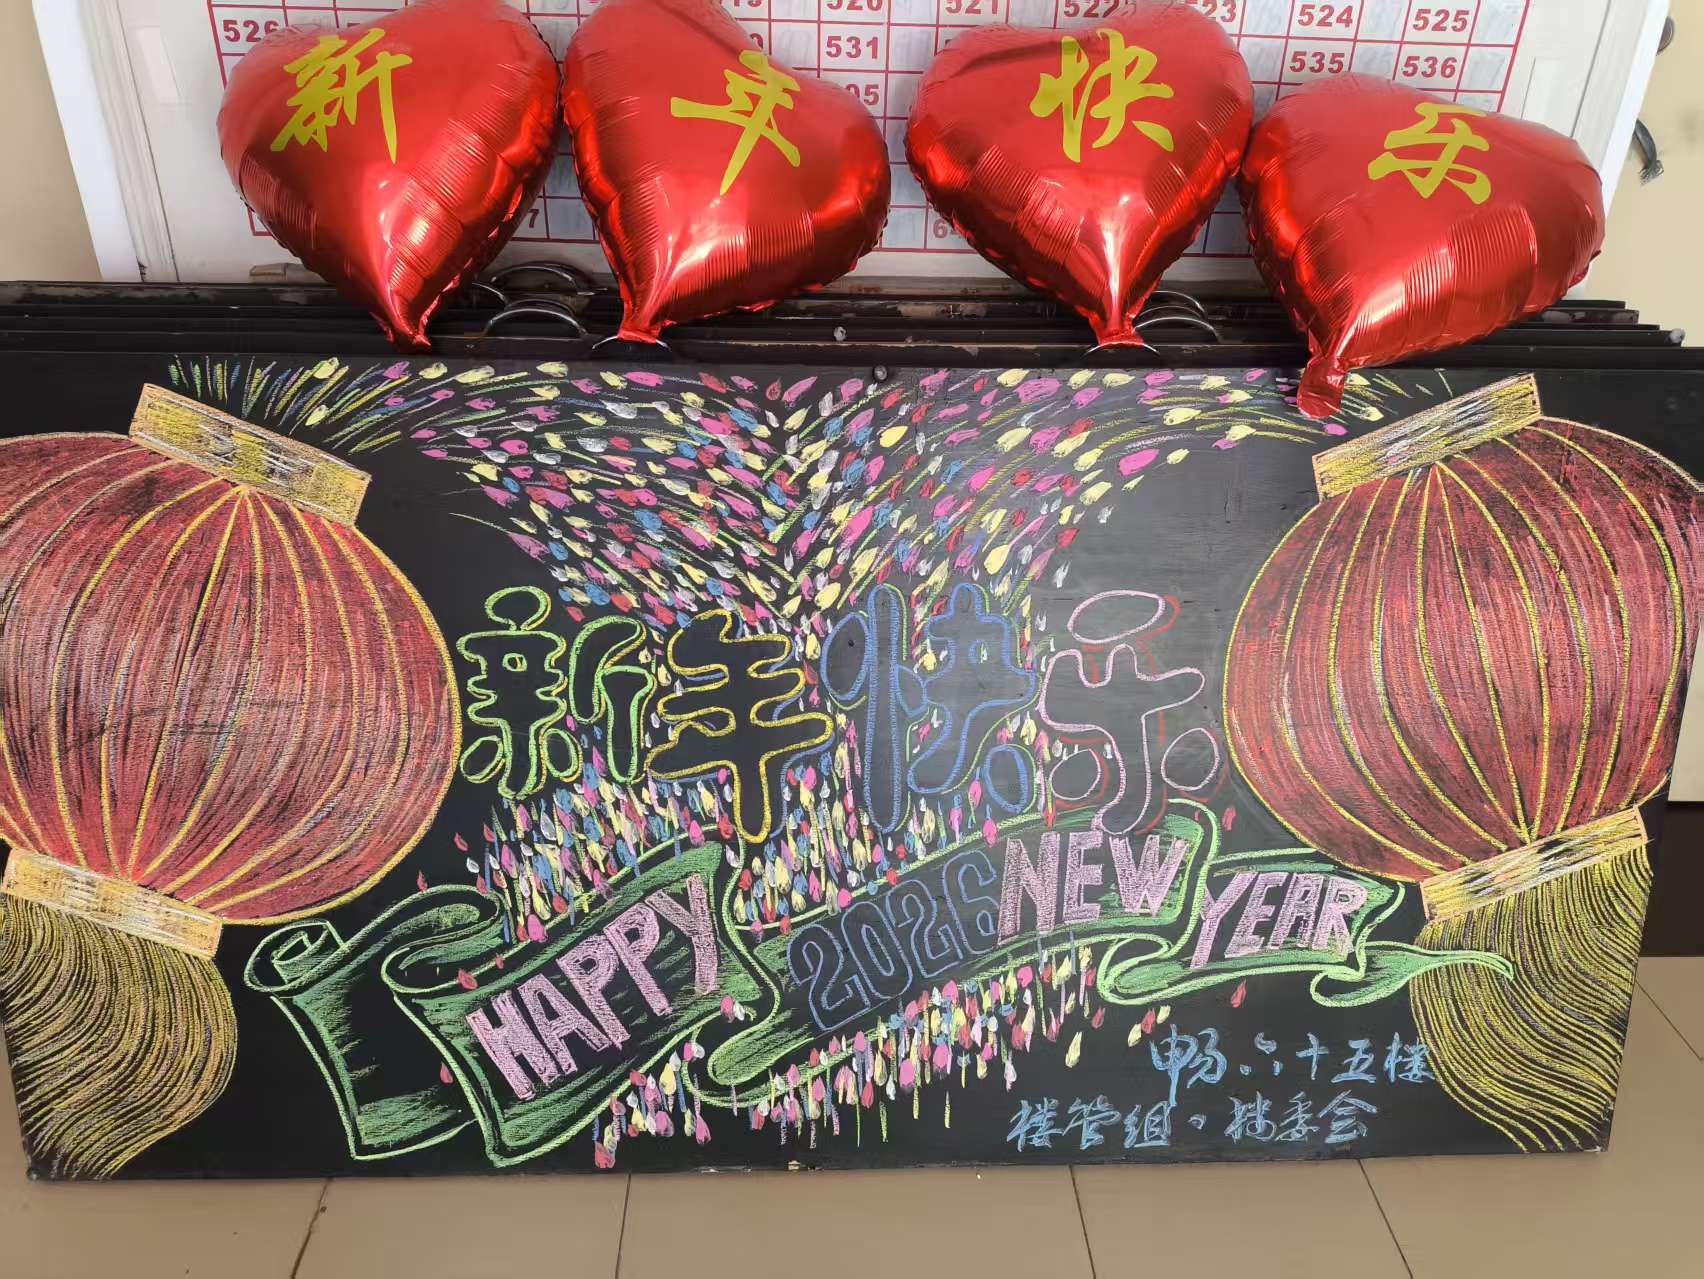 519 520 521 522 523 524 525
526 531 535 536
新年快乐
新年快乐
HAPPY 2026 NEW YEAR
畅·六十五楼
楼管组·楼委会